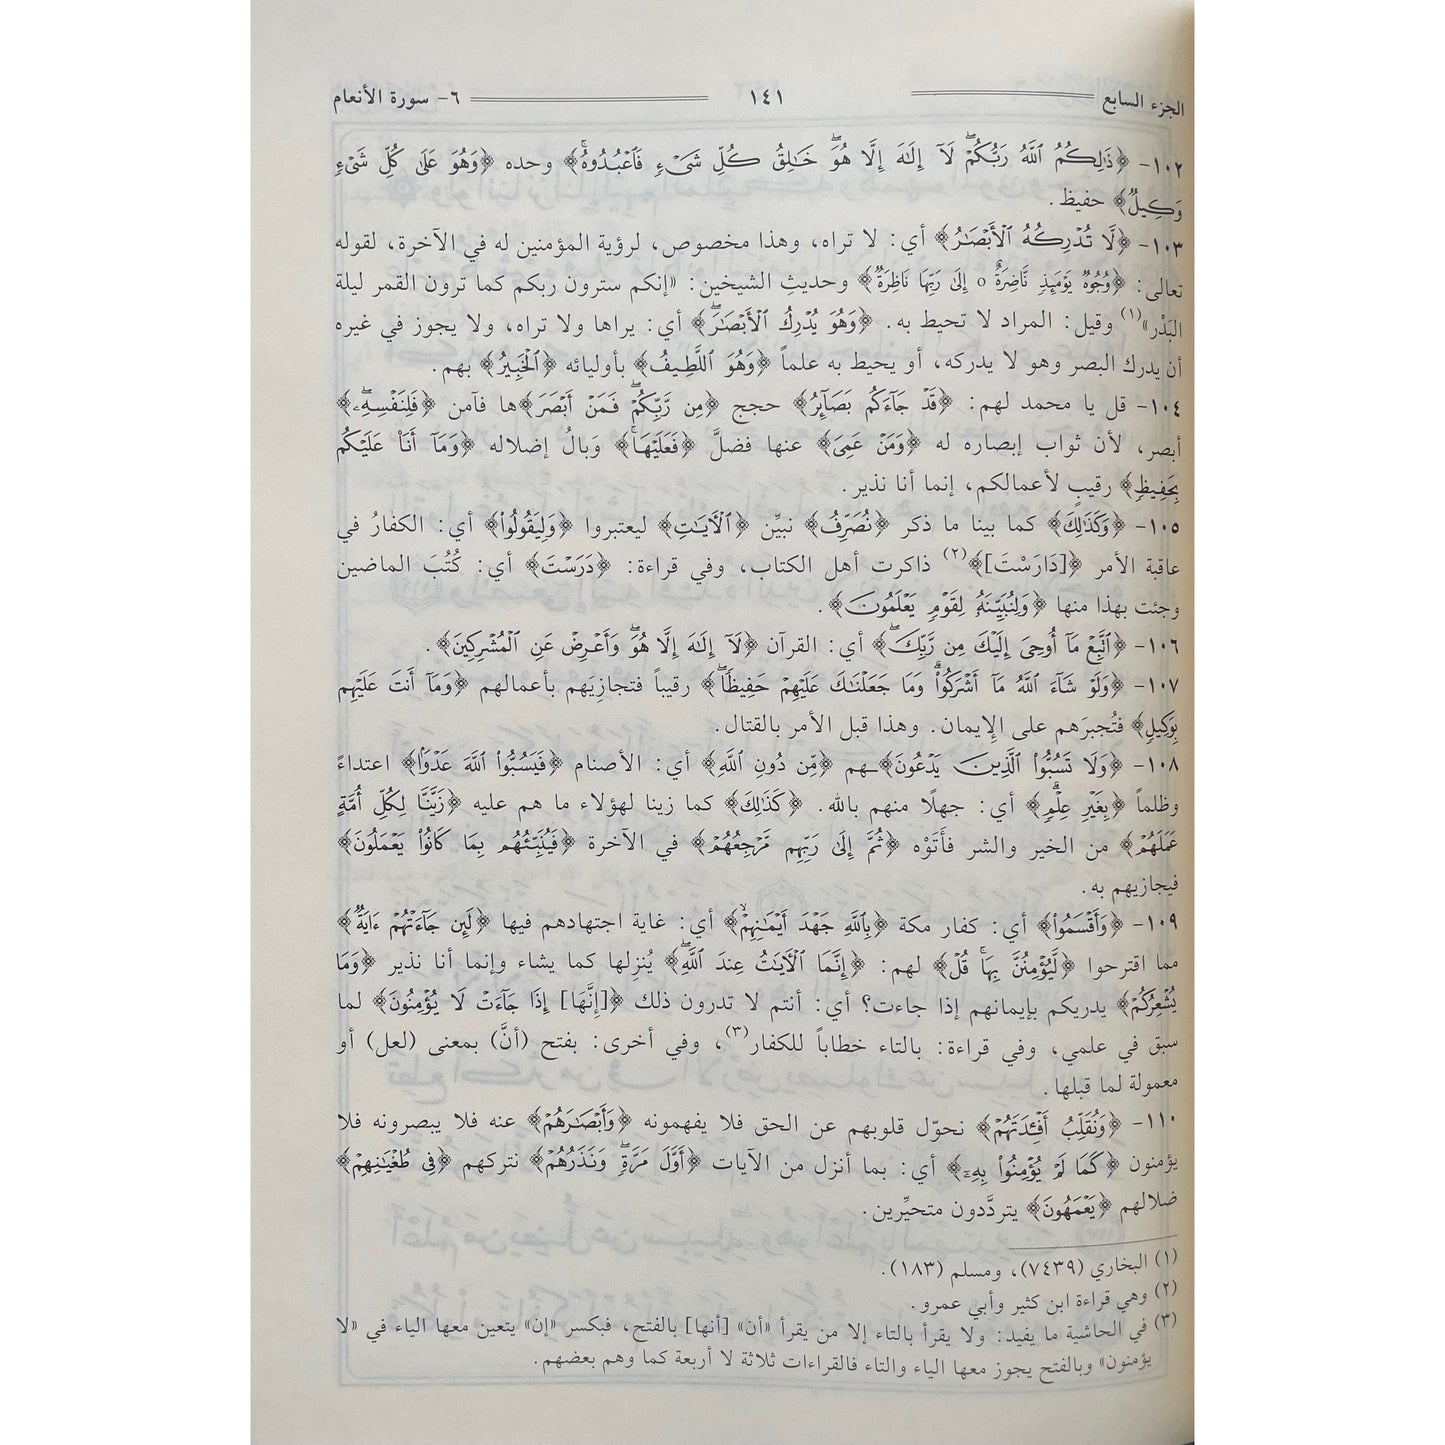 الجزء السابع ١٤١ ٦- سورة الأنعام
١٠٢- ﴿ذَٰلِكُمُ ٱللَّهُ رَبُّكُمْۖ لَآ إِلَٰهَ إِلَّا هُوَۖ خَٰلِقُ كُلِّ شَىْءٍ فَٱعْبُدُوهُۚ﴾ وحده ﴿وَهُوَ عَلَىٰ كُلِّ شَىْءٍ
وَكِيلٌ﴾ حفيظ.
١٠٣- ﴿لَّا تُدْرِكُهُ ٱلْأَبْصَٰرُ﴾ أي: لا تراه، وهذا مخصوص، لرؤية المؤمنين له في الآخرة، لقوله
تعالى: ﴿وُجُوهٌ يَوْمَئِذٍ نَّاضِرَةٌ ٥ إِلَىٰ رَبِّهَا نَاظِرَةٌ﴾ وحديثِ الشيخين: «إنكم سترون ربكم كما ترون القمر ليلة
البَدْر»(١) وقيل: المراد لا تحيط به. ﴿وَهُوَ يُدْرِكُ ٱلْأَبْصَٰرَۖ﴾ أي: يراها ولا تراه، ولا يجوز في غيره
أن يدرك البصر وهو لا يدركه، أو يحيط به علماً ﴿وَهُوَ ٱللَّطِيفُ﴾ بأوليائه ﴿ٱلْخَبِيرُ﴾ بهم.
١٠٤- قل يا محمد لهم: ﴿قَدْ جَآءَكُم بَصَآئِرُ﴾ حجج ﴿مِن رَّبِّكُمْۖ فَمَنْ أَبْصَرَ﴾ها فآمن ﴿فَلِنَفْسِهِۦۖ﴾
أبصر، لأن ثواب إبصاره له ﴿وَمَنْ عَمِىَ﴾ عنها فضلَّ ﴿فَعَلَيْهَاۚ﴾ وَبالُ إضلاله ﴿وَمَآ أَنَا۠ عَلَيْكُم
بِحَفِيظٍ﴾ رقيبٍ لأعمالكم، إنما أنا نذير.
١٠٥- ﴿وَكَذَٰلِكَ﴾ كما بينا ما ذكر ﴿نُصَرِّفُ﴾ نبيِّن ﴿ٱلْءَايَٰتِ﴾ ليعتبروا ﴿وَلِيَقُولُوا۟﴾ أي: الكفارُ في
عاقبة الأمر ﴿[دَارَسْتَ]﴾(٢) ذاكرت أهل الكتاب، وفي قراءة: ﴿دَرَسْتَ﴾ أي: كُتُبَ الماضين
وجئت بهذا منها ﴿وَلِنُبَيِّنَهُۥ لِقَوْمٍ يَعْلَمُونَ﴾.
١٠٦- ﴿ٱتَّبِعْ مَآ أُوحِىَ إِلَيْكَ مِن رَّبِّكَۖ﴾ أي: القرآن ﴿لَآ إِلَٰهَ إِلَّا هُوَۖ وَأَعْرِضْ عَنِ ٱلْمُشْرِكِينَ﴾.
١٠٧- ﴿وَلَوْ شَآءَ ٱللَّهُ مَآ أَشْرَكُوا۟ۗ وَمَا جَعَلْنَٰكَ عَلَيْهِمْ حَفِيظًاۖ﴾ رقيباً فتجازِيَهم بأعمالهم ﴿وَمَآ أَنتَ عَلَيْهِم
بِوَكِيلٍ﴾ فتُجبرَهم على الإيمان. وهذا قبل الأمر بالقتال.
١٠٨- ﴿وَلَا تَسُبُّوا۟ ٱلَّذِينَ يَدْعُونَ﴾ـهم ﴿مِن دُونِ ٱللَّهِ﴾ أي: الأصنام ﴿فَيَسُبُّوا۟ ٱللَّهَ عَدْوًۢا﴾ اعتداءً
وظلماً ﴿بِغَيْرِ عِلْمٍۗ﴾ أي: جهلًا منهم بالله. ﴿كَذَٰلِكَ﴾ كما زينا لهؤلاء ما هم عليه ﴿زَيَّنَّا لِكُلِّ أُمَّةٍ
عَمَلَهُمْ﴾ من الخير والشر فأَتَوْه ﴿ثُمَّ إِلَىٰ رَبِّهِم مَّرْجِعُهُمْ﴾ في الآخرة ﴿فَيُنَبِّئُهُم بِمَا كَانُوا۟ يَعْمَلُونَ﴾
فيجازيهم به.
١٠٩- ﴿وَأَقْسَمُوا۟﴾ أي: كفار مكة ﴿بِٱللَّهِ جَهْدَ أَيْمَٰنِهِمْ﴾ أي: غاية اجتهادهم فيها ﴿لَئِن جَآءَتْهُمْ ءَايَةٌ﴾
مما اقترحوا ﴿لَّيُؤْمِنُنَّ بِهَاۚ قُلْ﴾ لهم: ﴿إِنَّمَا ٱلْءَايَٰتُ عِندَ ٱللَّهِۖ﴾ يُنزِلها كما يشاء وإنما أنا نذير ﴿وَمَا
يُشْعِرُكُمْ﴾ يدريكم بإيمانهم إذا جاءت؟ أي: أنتم لا تدرون ذلك ﴿[إِنَّهَا] إِذَا جَآءَتْ لَا يُؤْمِنُونَ﴾ لما
سبق في علمي، وفي قراءة: بالتاء خطاباً للكفار(٣)، وفي أخرى: بفتح (أنَّ) بمعنى (لعل) أو
معمولة لما قبلها.
١١٠- ﴿وَنُقَلِّبُ أَفْـِٔدَتَهُمْ﴾ نحوّل قلوبهم عن الحق فلا يفهمونه ﴿وَأَبْصَٰرَهُمْ﴾ عنه فلا يبصرونه فلا
يؤمنون ﴿كَمَا لَمْ يُؤْمِنُوا۟ بِهِۦٓ﴾ أي: بما أنزل من الآيات ﴿أَوَّلَ مَرَّةٍۖ وَنَذَرُهُمْ﴾ نتركهم ﴿فِى طُغْيَٰنِهِمْ﴾
ضلالهم ﴿يَعْمَهُونَ﴾ يتردَّدون متحيِّرين.
(١) البخاري (٧٤٣٩)، ومسلم (١٨٣).
(٢) وهي قراءة ابن كثير وأبي عمرو.
(٣) في الحاشية ما يفيد: ولا يقرأ بالتاء إلا من يقرأ «أن» [أنها] بالفتح، فبكسر «إن» يتعين معها الياء في «لا
يؤمنون» وبالفتح يجوز معها الياء والتاء فالقراءات ثلاثة لا أربعة كما وهم بعضهم.